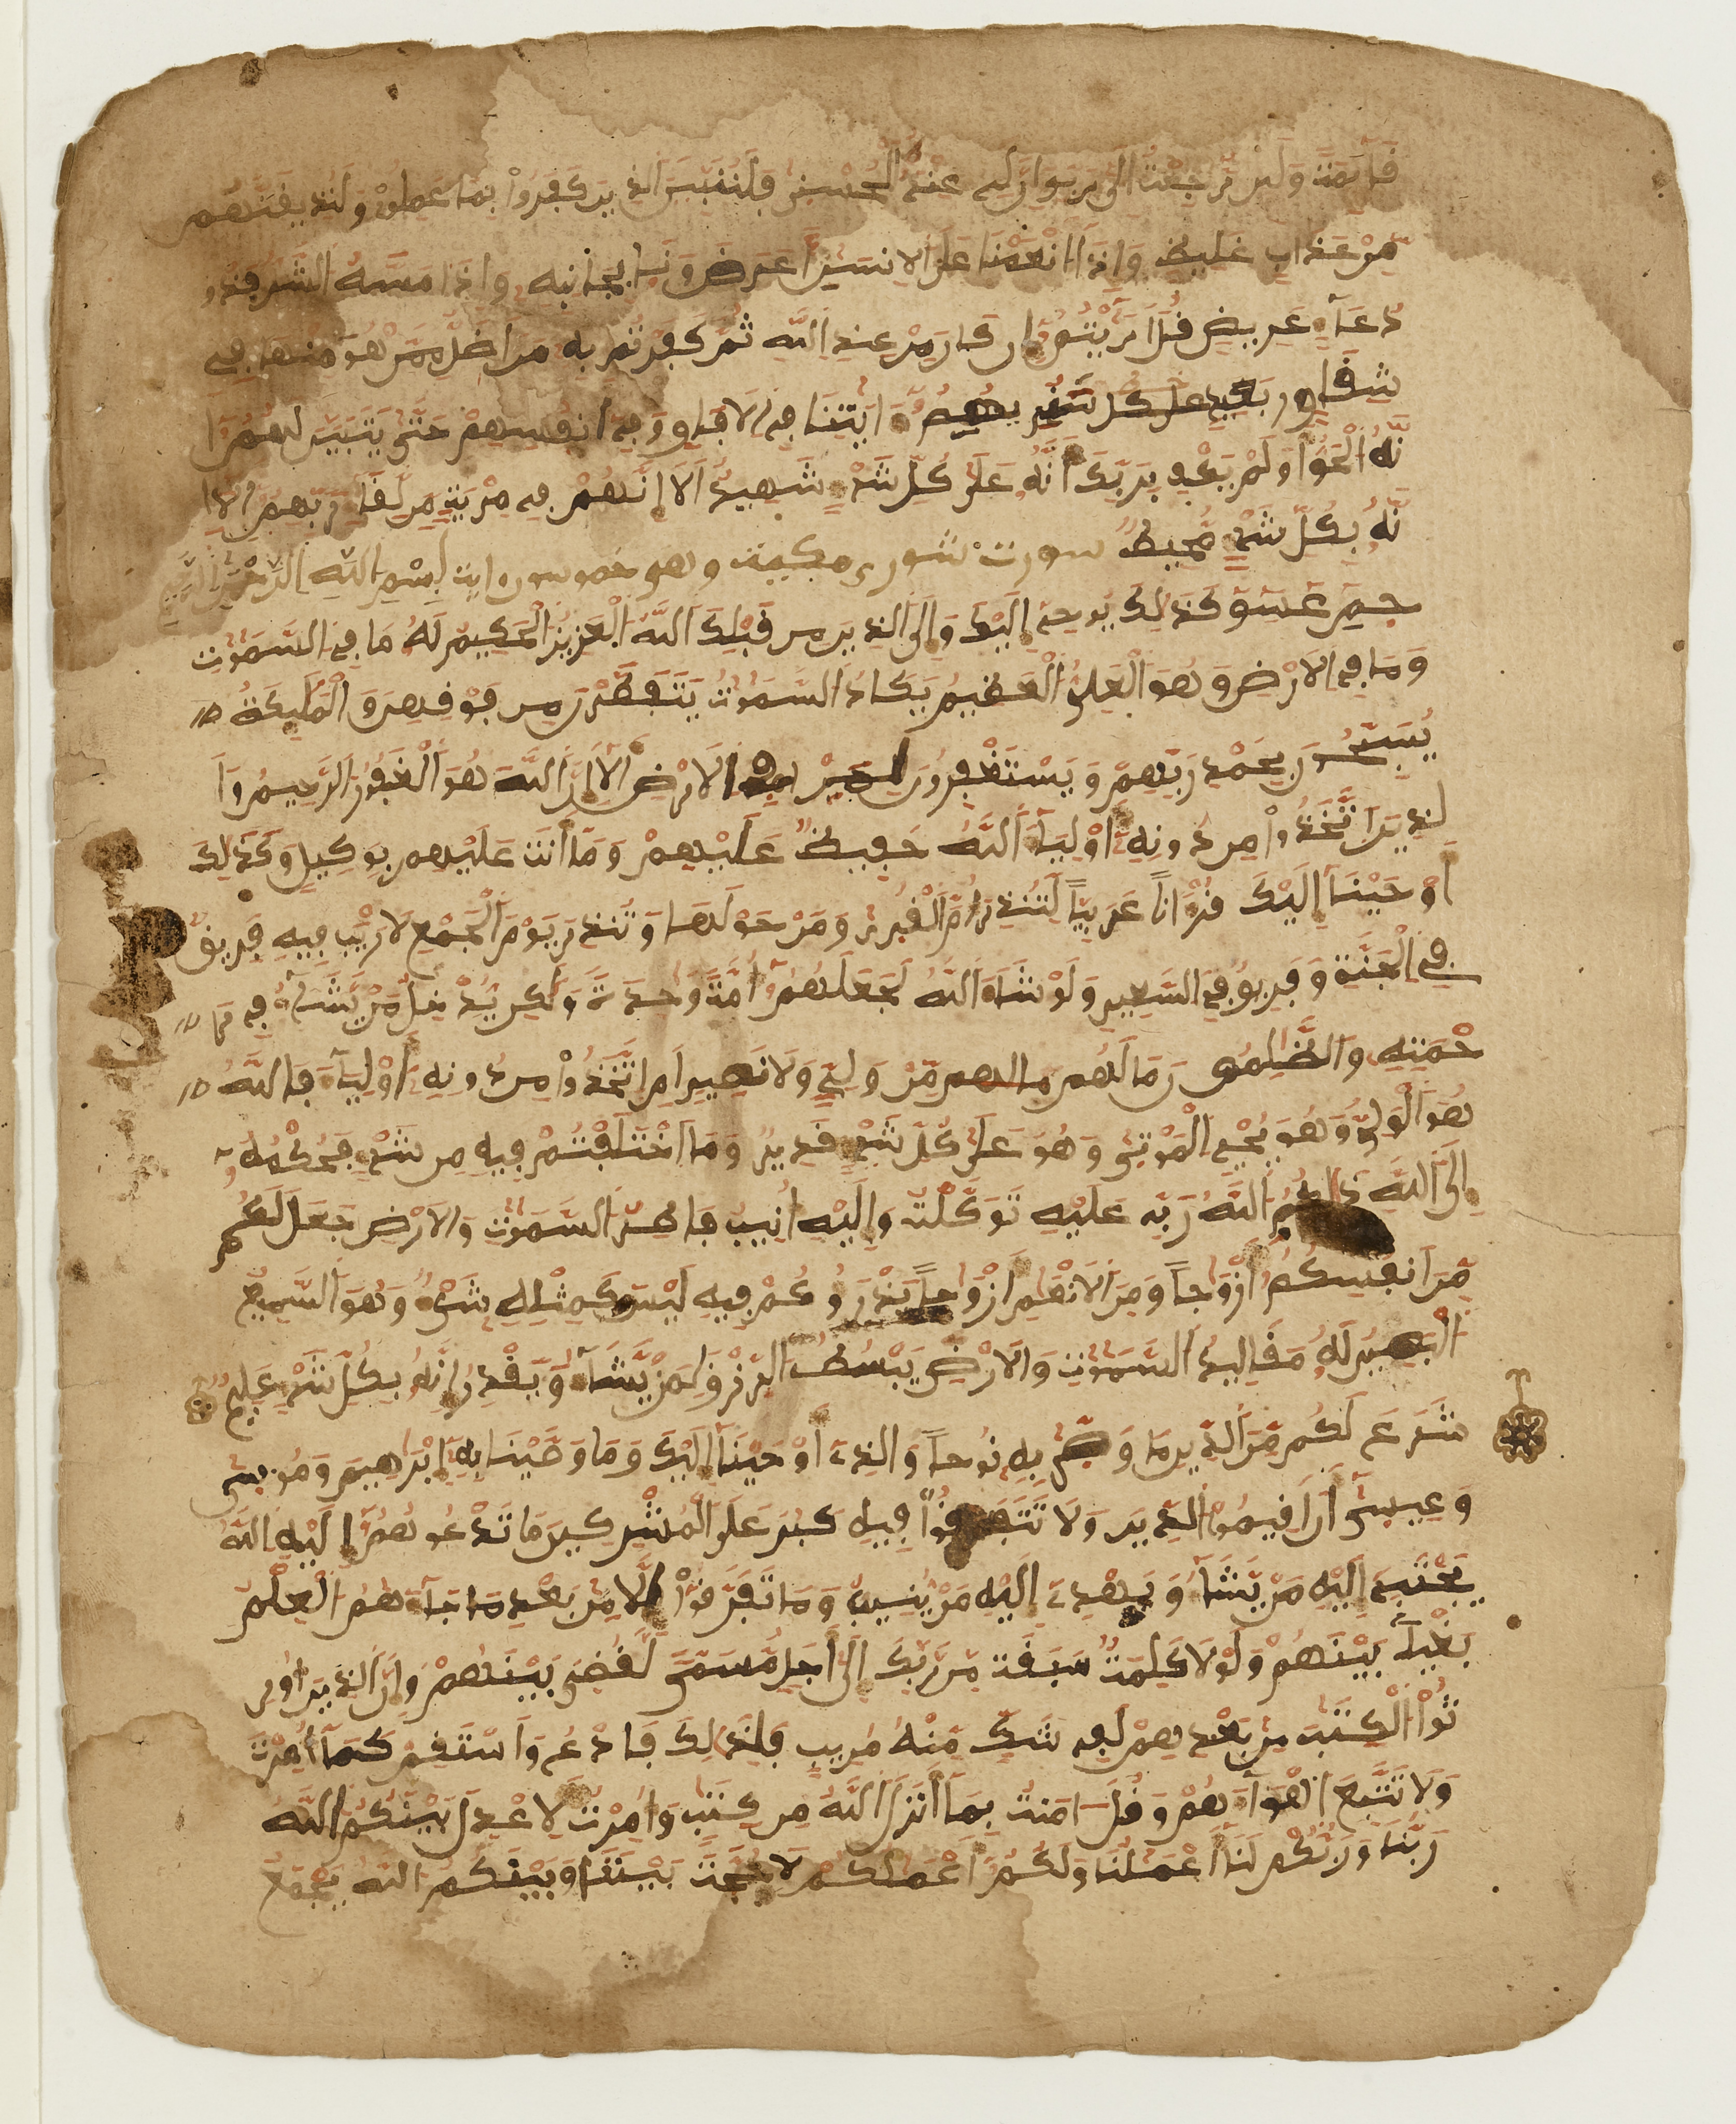 قَآئِمَةً وَلَئِن رُّجِعْتُ إِلَىٰ رَبِّي إِنَّ لِي عِندَهُ لَلْحُسْنَىٰ فَلَنُنَبِّئَنَّ الذِينَ كَفَرُواْ بِمَا عَمِلُواْ وَلَنُذِيقَنَّهُم
مِّنْ عَذَابٍ غَلِيظٍ وَإِذَا أَنْعَمْنَا عَلَى الانسَٰنِ أَعْرَضَ وَنَـَٔا بِجَانِبِهِ وَإِذَا مَسَّهُ الشَّرُّ فَذُو
دُعَآءٍ عَرِيضٍ قُلَ اَرَٰيْتُمُ إِن كَانَ مِنْ عِندِ اللَّهِ ثُمَّ كَفَرْتُم بِهِ مَنَ اَضَلُّ مِمَّنْ هُوَ مِنْهَا فِي
شِقَاقٍ بَعِيدٍ على كل سَنُرِيهِمُ ءَايَٰتِنَا فِي الَافَاقِ وَفِي أَنفُسِهِمْ حَتَّىٰ يَتَبَيَّنَ لَهُمُ أَ
نَّهُ الْحَقُّ أَوَلَمْ يَكْفِ بِرَبِّكَ أَنَّهُ عَلَىٰ كُلِّ شَيْءٍ شَهِيدٌ أَلَا إِنَّهُمْ فِي مِرْيَةٍ مِّن لِّقَآءِ رَبِّهِمُ أَلَا إِ
نَّهُ بِكُلِّ شَيْءٍ مُّحِيطٌ سورت شورى مكية وهو خمسون ايت بِسْمِ اللَّهِ الرَّحْمَٰنِ الرَّحِيمِ
حمِّ عَسِقَ كَذَٰلِكَ يُوحِي إِلَيْكَ وَإِلَى الذِينَ مِن قَبْلِكَ اللَّهُ الْعَزِيزُ الْحَكِيمُ لَهُ مَا فِي السَّمَٰوَٰتِ
وَمَا فِي الَارْضِ وَهُوَ الْعَلِيُّ الْعَظِيمُ يَكَادُ السَّمَٰوَٰتُ يَتَفَطَّرْنَ مِن فَوْقِهِنَّ وَالْمَلَٰٓئِكَةُ
يُسَبِّحُونَ بِحَمْدِ رَبِّهِمْ وَيَسْتَغْفِرُونَ لِمَن فِي الَارْضِ أَلَا إِنَّ اللَّهَ هُوَ الْغَفُورُ الرَّحِيمُ وَا
لذِينَ اَتَّخَذُواْ مِن دُونِهِ أَوْلِيَآءَ اللَّهُ حَفِيظٌ عَلَيْهِمْ وَمَا أَنتَ عَلَيْهِم بِوَكِيلٍ وَكَذَٰلِكَ
أَوْحَيْنَا إِلَيْكَ قُرْءَاناً عَرَبِيّاً لِّتُنذِرَ أُمَّ الْقُرَىٰ وَمَنْ حَوْلَهَا وَتُنذِرَ يَوْمَ الْجَمْعِ لَا رَيْبَ فِيهِ فَرِيقٌ
فِي الْجَنَّةِ وَفَرِيقٌ فِي السَّعِيرِ وَلَوْ شَآءَ اللَّهُ لَجَعَلَهُمُ أُمَّةً وَٰحِدَةً وَلَٰكِن يُدْخِلُ مَنْ يَّشَآءُ فِي رَ
حْمَتِهِ وَالظَّٰلِمُونَ مَا لَهُم مالهم مِّنْ وَلِيٍّ وَلَا نَصِيرٍ اَمِ اِتَّخَذُواْ مِن دُونِهِ أَوْلِيَآءَ فَاللَّهُ
هُوَ الْوَلِيُّ وَهُوَ يُحْيِ الْمَوْتَىٰ وَهُوَ عَلَىٰ كُلِّ شَيْءٍ قَدِيرٌ وَمَا اَخْتَلَفْتُمْ فِيهِ مِن شَيْءٍ فَحُكْمُهُ
إِلَى اللَّهِ ذَٰلِكُمُ اللَّهُ رَبِّي عَلَيْهِ تَوَكَّلْتُ وَإِلَيْهِ أُنِيبُ فَاطِرُ السَّمَٰوَٰتِ وَالَارْضِ جَعَلَ لَكُم
مِّنَ اَنفُسِكُمُ أَزْوَٰجاً وَمِنَ الَانْعَٰمِ أَزْوَٰجاً يَذْرَؤُكُمْ فِيهِ لَيْسَ كَمِثْلِهِ شَيْءٌ وَهُوَ السَّمِيعُ
الْبَصِيرُ لَهُ مَقَالِيدُ السَّمَٰوَٰتِ وَالَارْضِ يَبْسُطُ الرِّزْقَ لِمَنْ يَّشَآءُ وَيَقْدِرُ إِنَّهُ بِكُلِّ شَيْءٍ عَلِيمٌ
شَرَعَ لَكُم مِّنَ الدِّينِ مَا وَصَّىٰ بِهِ نُوحاً وَالذِي أَوْحَيْنَا إِلَيْكَ وَمَا وَصَّيْنَا بِهِ إِبْرَٰهِيمَ وَمُوسَىٰ
وَعِيسَىٰ أَنَ اَقِيمُواْ الدِّينَ وَلَا تَتَفَرَّقُواْ فِيهِ كَبُرَ عَلَى الْمُشْرِكِينَ مَا تَدْعُوهُمُ إِلَيْهِ اللَّهُ
يَجْتَبِي إِلَيْهِ مَنْ يَّشَآءُ وَيَهْدِي إِلَيْهِ مَنْ يُنِيبُ وَمَا تَفَرَّقُواْ إِلَّا مِن بَعْدِ مَا جَآءَهُمُ الْعِلْمُ
بَغْياً بَيْنَهُمْ وَلَوْلَا كَلِمَةٌ سَبَقَت مِن رَّبِّكَ إِلَىٰ أَجَلٍ مُّسَمًّى لَّقُضِيَ بَيْنَهُمْ وَإِنَّ الذِينَ أُورِ
ثُواْ الْكِتَٰبَ مِن بَعْدِهِمْ لَفِي شَكٍّ مِّنْهُ مُرِيبٍ فَلِذَٰلِكَ فَادْعُ وَاسْتَقِمْ كَمَا أُمِرْتَ
وَلَا تَتَّبِعَ اَهْوَآءَهُمْ وَقُلَ ءَامَنتُ بِمَا أَنزَلَ اللَّهُ مِن كِتَٰبٍ وَأُمِرْتُ لِأَعْدِلَ بَيْنَكُمُ اللَّهُ
رَبُّنَا وَرَبُّكُمْ لَنَا أَعْمَٰلُنَا وَلَكُمُ أَعْمَٰلُكُمْ لَا حُجَّةَ بَيْنَنَا وَبَيْنَكُمُ اللَّهُ يَجْمَعُ